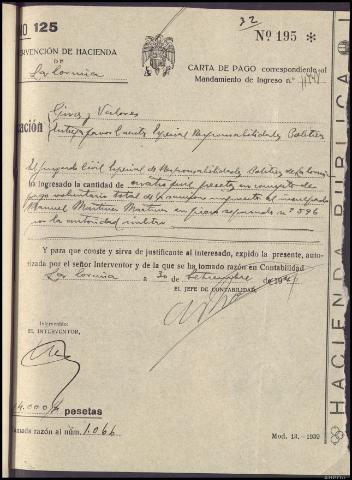 22
O 125
Nº 195 *
RVENCIÓN DE HACIENDA
DE
La Coruña
CARTA DE PAGO correspondiente al
Mandamiento de Ingreso n.º
Giros y Valores
ación
Entregas favor Cuenta Especial Responsabilidades Politicas
El Juzgado Civil Especial de Responsabilidades Politicas de la Coruña
ha ingresado la cantidad de cuatro mil pesetas en concepto de
pago voluntario total de la sancion impuesta al inculpado
Manuel Martinez Martinez en pieza separada nº 596
por la autoridad militar
Y para que conste y sirva de justificante al interesado, expido la presente, auto-
rizada por el señor Interventor y de la que se ha tomado razón en Contabilidad
La Coruña a 30 de Setiembre de 194
EL JEFE DE CONTABILIDAD
Intervine:
EL INTERVENTOR,
4.000 pesetas
omada razón al núm. 1.066
Mod. 13.-1939
HACIENDA PUBLICA